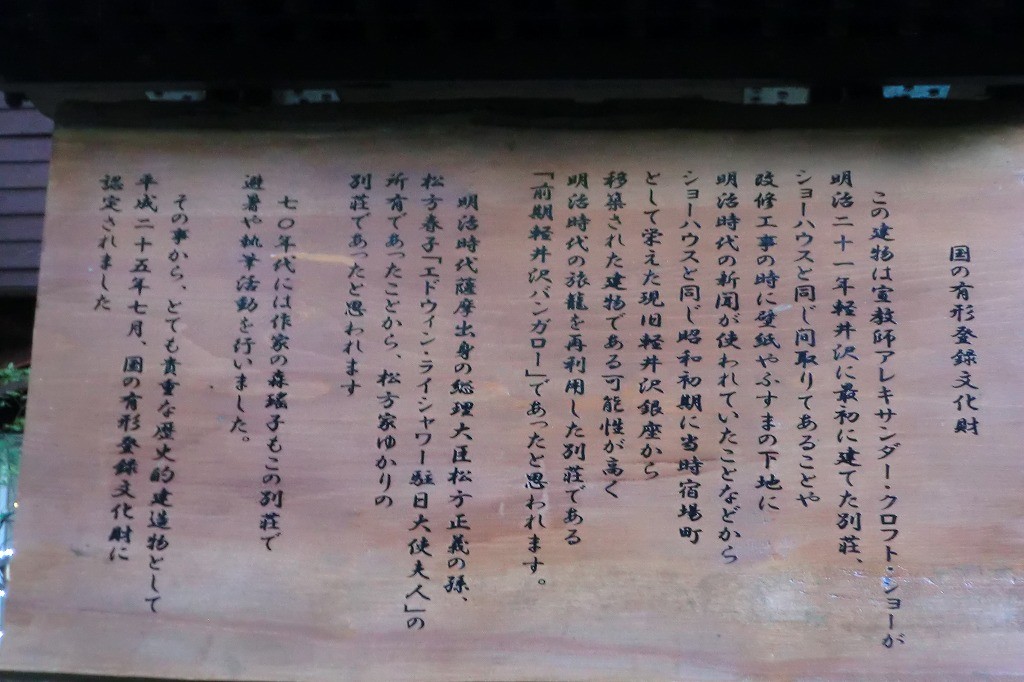 国の有形登録文化財
この建物は宣教師アレキサンダー・クロフト・ショーが
明治二十一年軽井沢に最初に建てた別荘、
ショーハウスと同じ間取りてあることや
改修工事の時に壁紙やふすまの下地に
明治時代の新聞が使われていたことなどから
ショーハウスと同じ昭和初期に当時宿場町
として栄えた現旧軽井沢銀座から
移築された建物である可能性が高く
明治時代の旅籠を再利用した別荘である
「前期軽井沢バンガロー」であったと思われます。
明治時代薩摩出身の総理大臣松方正義の孫、
松方春子「エドウィン・ライシャワー駐日大使夫人」の
所有であったことから、松方家ゆかりの
別荘であったと思われます
七〇年代には作家の森瑤子もこの別荘で
避暑や執筆活動を行いました。
その事から、とても貴重な歴史的建造物として
平成二十五年七月、国の有形登録文化財に
認定されました